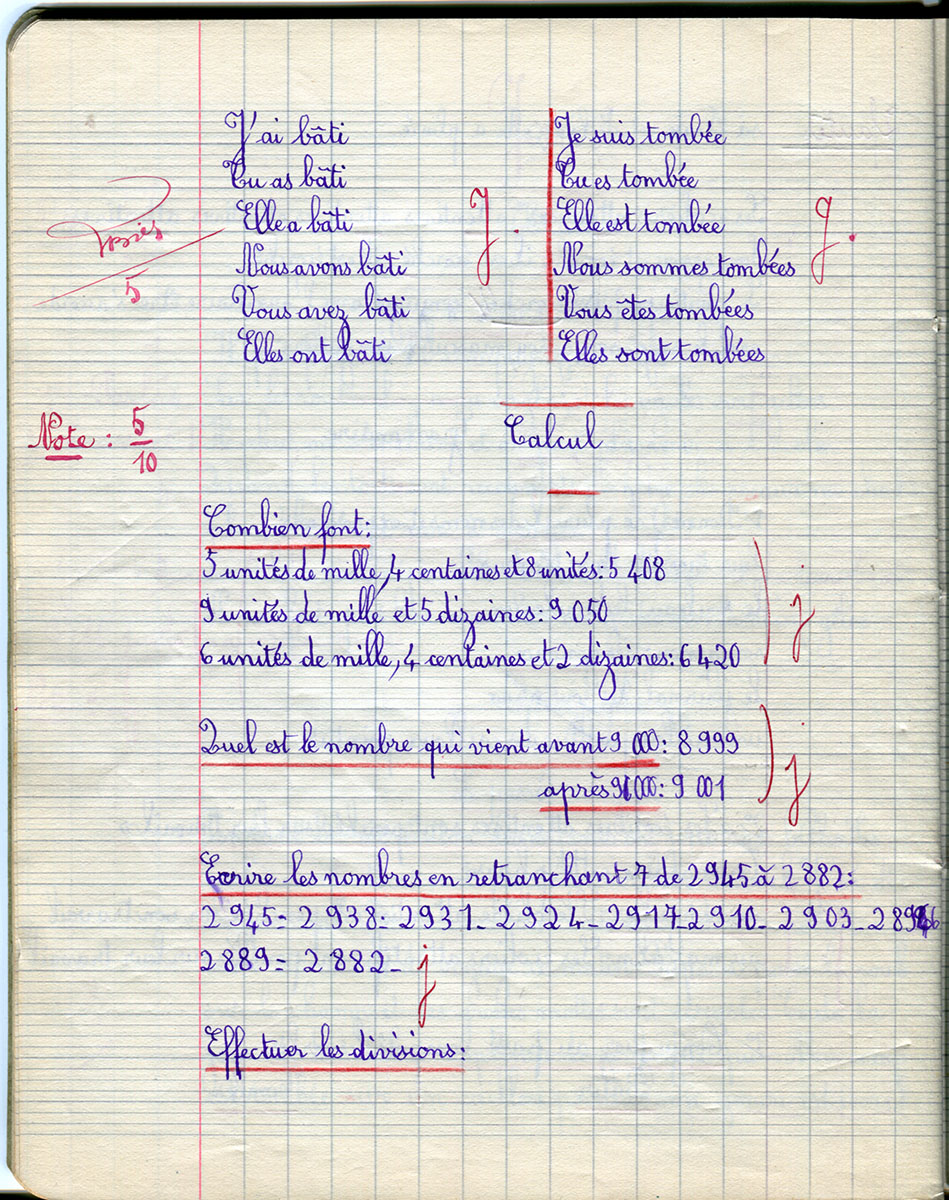 J'ai bâti
Tu as bâti
Elle a bâti
Nous avons bâti
Vous avez bâti
Elles ont bâti
J.
Je suis tombée
Tu es tombée
Elle est tombée
Nous sommes tombées
Vous êtes tombées
Elles sont tombées
J.
5
Note : 5/10
Calcul
Combien font:
5 unités de mille, 4 centaines et 8 unités: 5 408
9 unités de mille et 5 dizaines: 9 050
6 unités de mille, 4 centaines et 2 dizaines: 6 420
j
Quel est le nombre qui vient avant 9 000: 8 999
après 9 000: 9 001
j
Ecrire les nombres en retranchant 7 de 2 945 à 2 882:
2 945 - 2 938 - 2 931 - 2 924 - 2 917 - 2 910 - 2 903 - 2 896
2 889 - 2 882 - j
Effectuer les divisions: